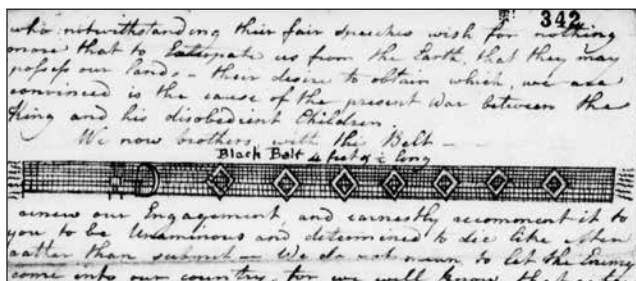 342
who notwithstanding their fair speeches wish for nothing
more that to Exterpate us from the Earth, that they may
possess our lands - their desire to obtain which, we are
convinced is the cause of the present War between the
King and his disobedient Children.
We now brothers with this Belt -
Black Belt 4 feet & ½ long
renew our Engagement, and earnestly recomment it to
you to be Unaminous and determined to die like Men
rather than submit - We do not mean to let the Enemy
come into our country, for we well know that